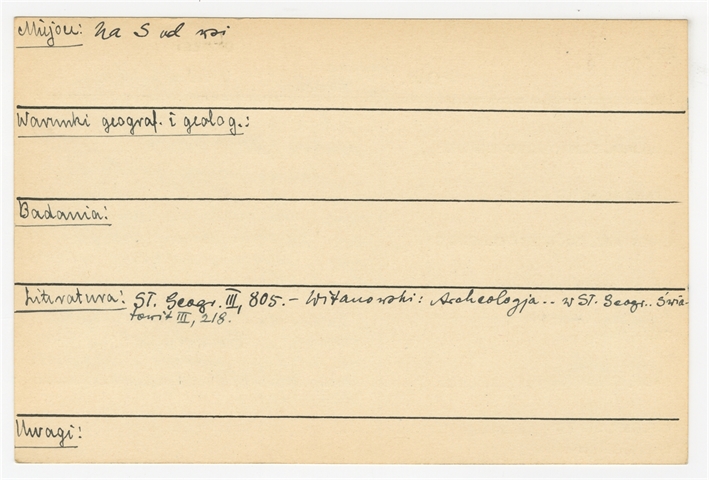 Miejsce: na S od wsi
Warunki geograf. i geolog.:
Badania:
Literatura: Sł. Geogr. III, 805. – Witanowski: Archeologja.. w Sł. Geogr.. Świa-
towit III, 218.
Uwagi: